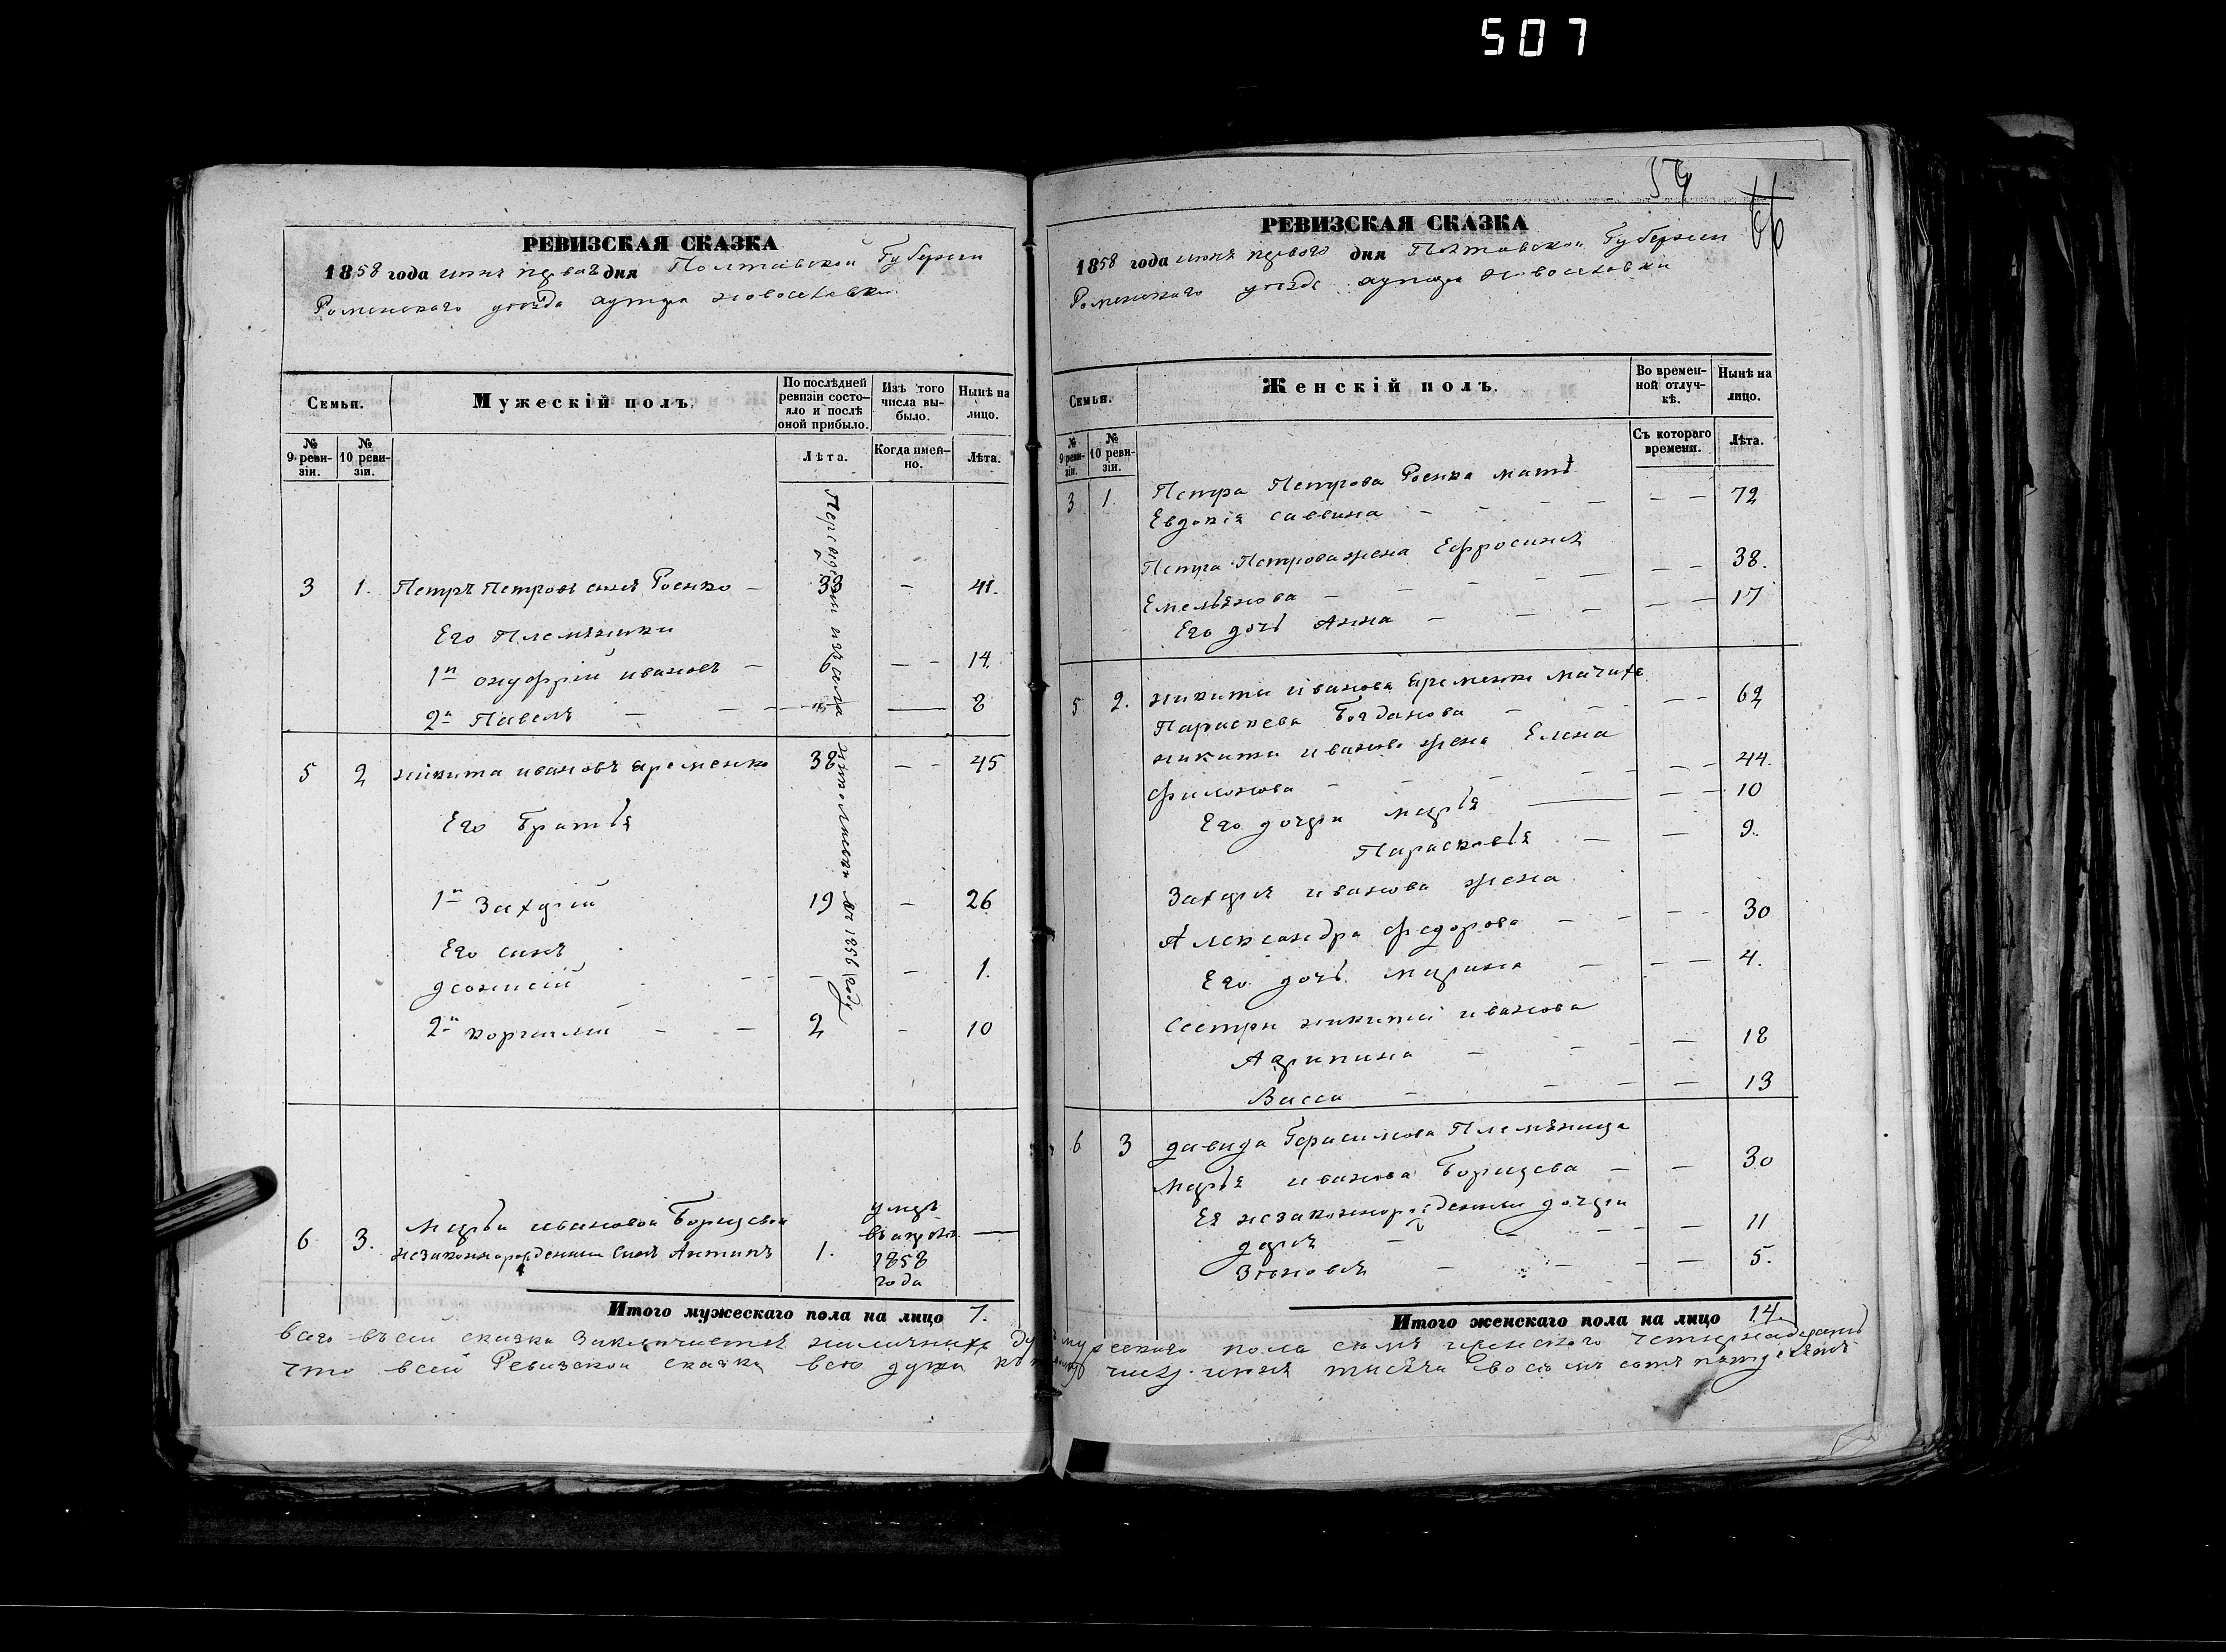 507
РЕВИЗСКАЯ СКАЗКА
1858 года июня перваго дня Полтавской Губернии
Роменского уезда хутора Новоселовки
Семьи.
Мужескій полъ.
По послѣдней ревизіи состояло и послѣ оной прибыло.
Изъ того числа выбыло.
Нынѣ на лицо.
№ 9 ревизіи.
№ 10 ревизіи.
Лѣта.
Когда именно.
Лѣта.
Переведены изъ села въ 1856 году
3 1. Петръ Петровъ сынъ Роенко – 33 – 41.
Его Племянники
1й Онуфрій Ивановъ – 6 – – 14.
2й Павелъ – – – 8
5 2 Никита Ивановъ Яременко 38 – – 45
Его Братья
1й Захарій 19 – 26
Его сынъ
Деонисій – – – – 1.
2й Корнилий – – 2 – 10
6 3. Марьи Ивановой Борщевой
незаконнорожденный сынъ Антипъ 1.
умеръ
1858
года
Итого мужескаго пола на лицо 7.
54
66
РЕВИЗСКАЯ СКАЗКА
1858 года июня перваго дня Полтавской Губернии
Роменскаго уезда хутора Новоселовки
Семьи.
Женскій полъ.
Во временной отлучкѣ.
Нынѣ на лицо.
№ 9 ревизіи.
№ 10 ревизіи.
Съ котораго времени.
Лѣта.
3 1. Петра Петрова Роенка мать
Евдокія Саввина – – – – – – 72
Петра Петрова жена Ефросинья
Емельянова – – – – – – 38.
Его дочь Анна – – – – – 17
5 2. Никиты Иванова Яременка мачиха
Параскева Богданова – – – – 62
Никиты Иванова жена Елена
Филонова – – – – – – 44.
Его дочери Марья – – – 10
Парасковья – – 9.
Захарія Иванова жена
Александра Федорова – – – – 30
Его дочь Марина – – – 4.
Сестры Никиты Иванова
Агрипина – – – – 18
Васса – – – – 13
6 3 Давида Герасимова Племянница
Марья Иванова Борщева – – 30
Ея незаконнорожденныя дочери
Дарія – – – – 11
Зѣновія – – – – 5.
Итого женскаго пола на лицо 14.
Всего въ сей сказке заключается наличныхъ душъ мужескаго пола семь женского четырнадцать
что въ сей Ревизской сказке все души тысяча восемь сотъ пятдесятъ